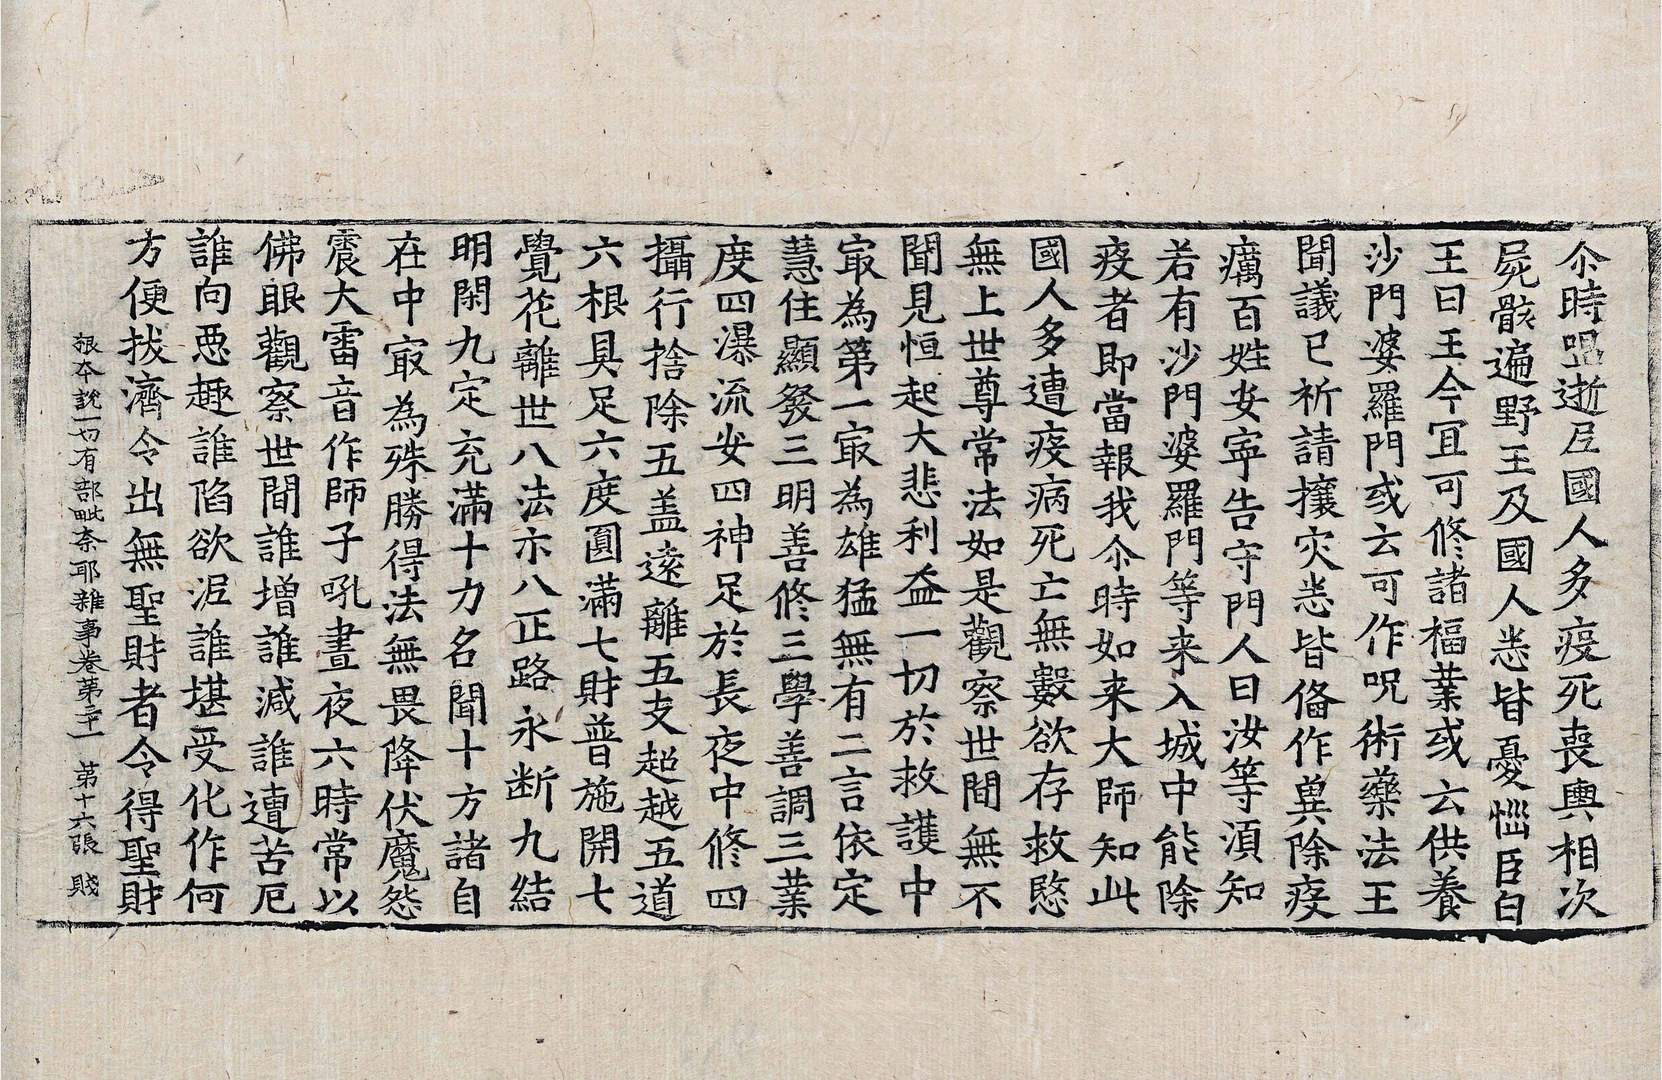 尒時呾逝尼國人多疫死喪輿相次
屍骸遍野王及國人悉皆憂惱臣白
王曰王今宜可修諸福業或云供養
沙門婆羅門或云可作呪術藥法王
聞議已祈請攘灾悉皆俻作兾除疫
癘百姓安寧告守門人曰汝等湏知
若有沙門婆羅門等来入城中能除
疫者即當報我尒時如来大師知此
國人多遭疫病死亡無數欲存救愍
無上世尊常法如是觀察世間無不
聞見恒起大悲利益一切於救護中
㝡為第一㝡為雄猛無有二言依定
慧住顯發三明善修三學善調三業
度四瀑流安四神足於長夜中修四
攝行捨除五盖遠離五支超越五道
六根具足六度圓滿七財普施開七
覺花離世八法示八正路永断九結
明閑九定充滿十力名聞十方諸自
在中㝡為殊勝得法無畏降伏魔怨
震大雷音作師子吼晝夜六時常以
佛眼觀察世間誰增誰減誰遭苦厄
誰向惡趣誰陷欲泥誰堪受化作何
方便拔濟令出無聖財者令得聖財
根本說一切有部毗奈耶雜事卷第二十一 第十六張 賤